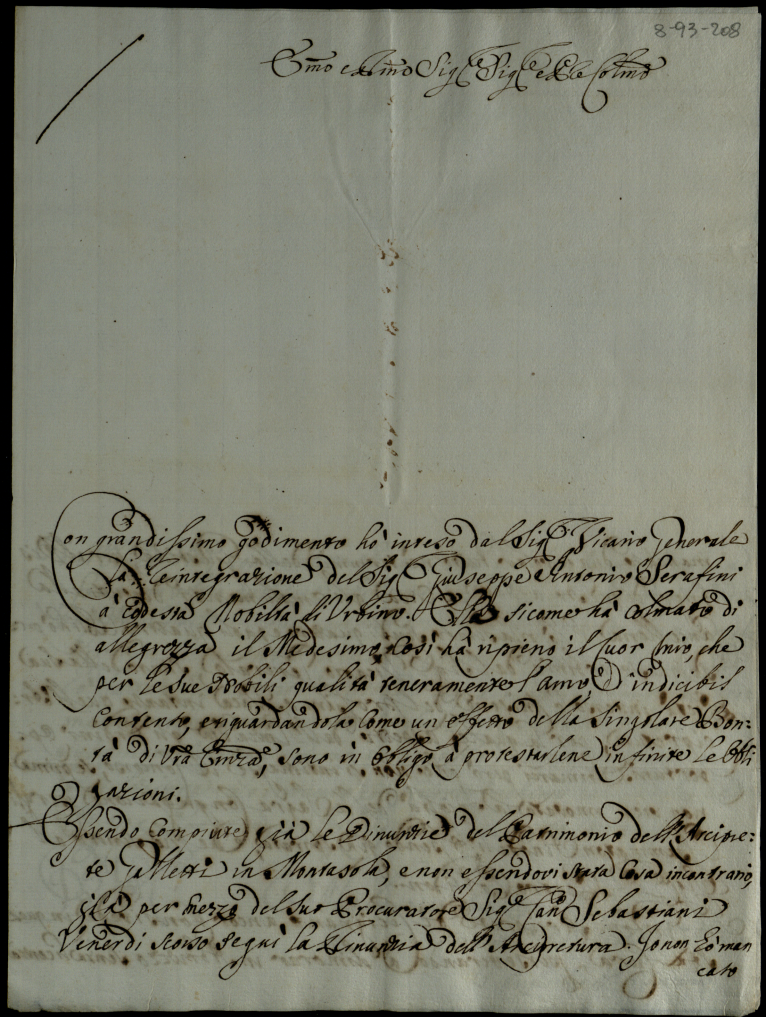 8-93-208
Emo e Rmo Sig.re Sig.re e Pne Colmo
Con grandissimo godimento hò inteso dal Sig.re Vicario Generale
la Reintegrazione del Sig.re Giuseppe Antonio Serafini
à codesta Nobiltà di Urbino. Ella sicome hà colmato di
allegrezza il Medesimo, così hà ripieno il Cuor mio, che
per le sue Nobili qualità teneramente l'amo, d'indicibil
contento, e riguardandola come un effetto della singolare Bon-
tà di Vra Emza, sono in obligo à protestarlene infinite le Obli
gazioni.
Essendo compiute già le Dinunzie del Patrimonio dell'Arcipre-
te Galletti in Montasola, e non essendovi stata cosa incontrario,
già per mezzo del suo Procuratore Sig.re Sebastiani
Venerdì scorso seguì la Rinunzia dell'Arcipretura. Io non hò man
cato